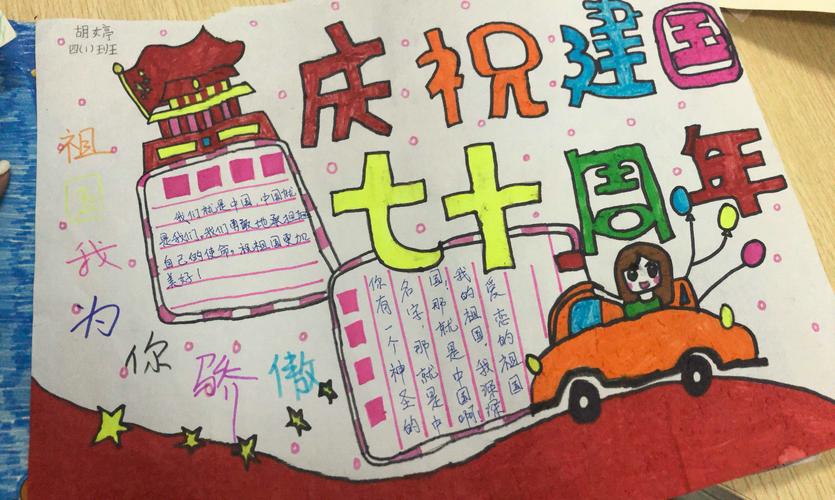 胡婷
四(1)班
庆祝建国
七十周年
祖国我为你骄傲
我们就是中国,中国就
是我们。我们勇敢地承担起
自己的使命,祖国更加
美好!
你有一个神圣的
名字,那就是中
国!那就是中国啊,
我的祖国。我深深
爱恋的祖国